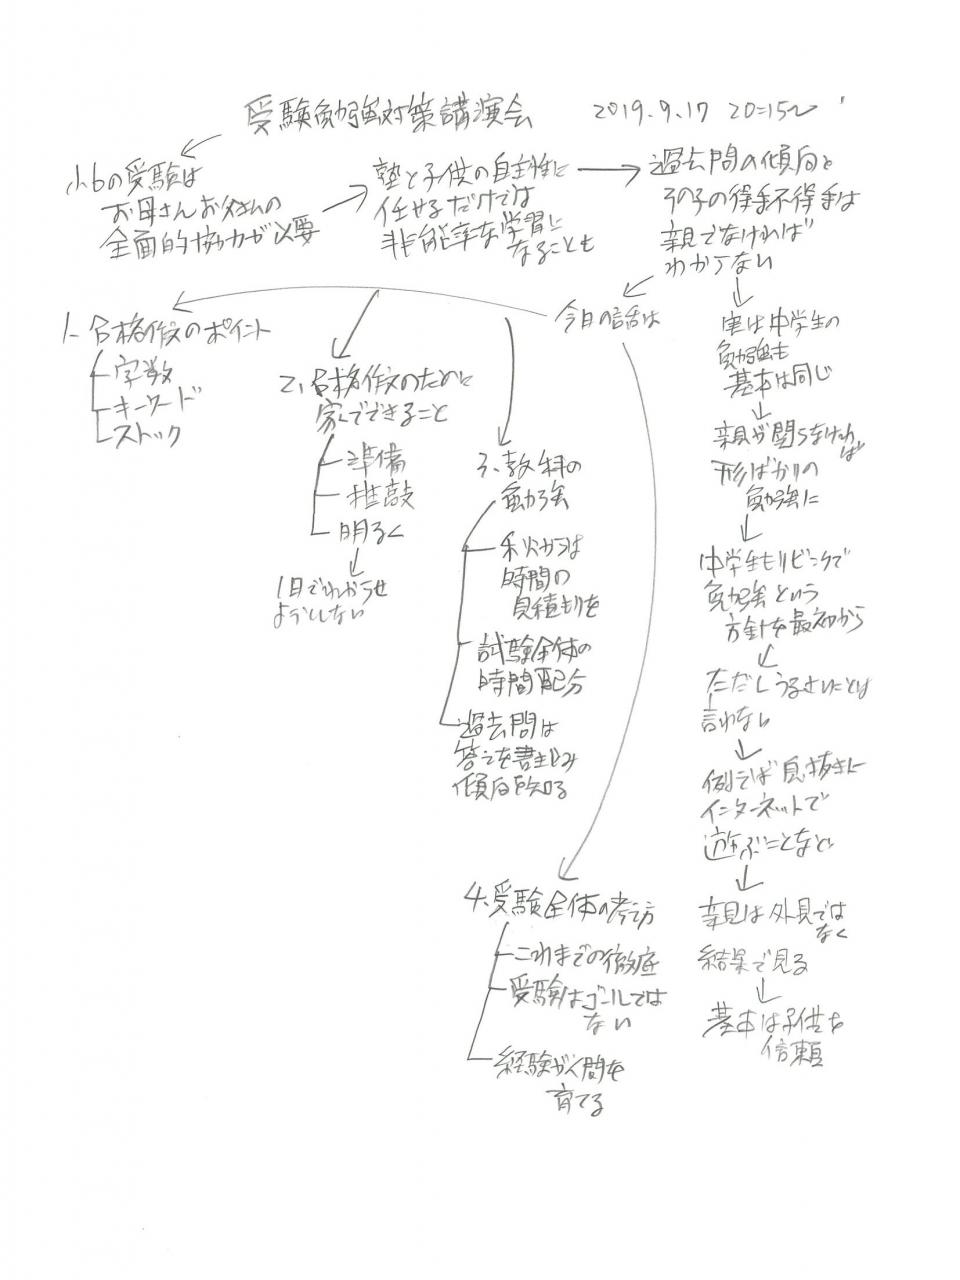 受験勉強対策講演会 2019.9.17 20=15〜
小6の受験は
お母さんお父さんの
全面的協力が必要
塾と子供の自主性に
任せるだけでは
非能率な学習に
なることも
過去問の傾向と
その子の得手不得手は
親でなければ
わからない
今日の話は
1、合格作文のポイント
字数
キーワード
ストック
2、合格作文のために
家でできること
準備
推敲
明るく
1日でわからせ
ようとしない
3、教科の
勉強
秋からは
時間の
見積もりを
試験全体の
時間配分
過去問は
答えを書き込み
傾向を知る
4、受験全体の考え方
これまでの徹底
受験はゴールでは
ない
経験が人間を
育てる
実は中学生の
勉強も
基本は同じ
親が関らなければ
形ばかりの
勉強に
中学生もリビングで
勉強という
方針を最初から
ただしうるさいことは
言わない
例えば息抜きに
インターネットで
遊ぶことなど
親は外見では
なく
結果で見る
基本は子供を
信頼